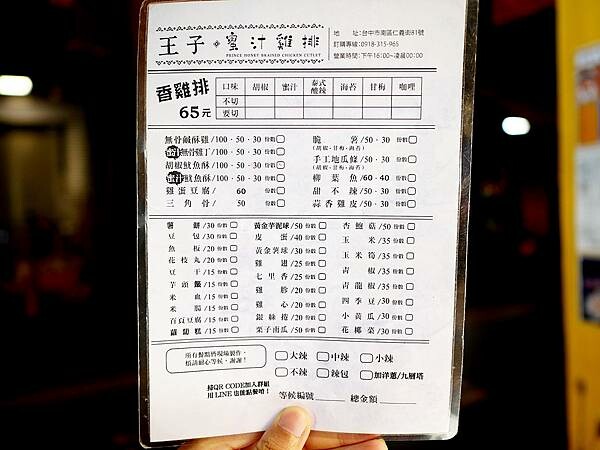 王子·蜜汁雞排
PRINCE HONEY BRAISED CHICKEN CUTLET
地 址:台中市南區仁義街81號
訂購專線:0918-315-965
營業時間:下午16:00~凌晨00:00
香雞排
65元
口味 胡椒 蜜汁 泰式酸辣 海苔 甘梅 咖哩
不切
要切
無骨鹹酥雞/100·50·30 份數
蜜汁無骨雞丁/100·50·30 份數
胡椒魷魚酥/100·50·30 份數
蜜汁魷魚酥/100·50·30 份數
雞蛋豆腐/ 60 份數
三角骨/ 50 份數
脆 薯/50·30 份數
(胡椒·甘梅·海苔)
手工地瓜條/50·30 份數
(胡椒·甘梅·海苔)
柳葉魚/60·40 份數
甜不辣/50·30 份數
蒜香雞皮/50·30 份數
薯 餅/30 份數
豆 包/30 份數
魚 板/20 份數
花枝丸/20 份數
豆 干/15 份數
芋頭饅/15 份數
米 血/15 份數
米 腸/15 份數
百頁豆腐/15 份數
蘿蔔糕/15 份數
黃金芋泥球/50 份數
皮 蛋/40 份數
黃金薯球/30 份數
雞 翅/25 份數
七里香/25 份數
雞 胗/20 份數
雞 心/20 份數
銀絲捲/20 份數
栗子南瓜/50 份數
杏鮑菇/50 份數
玉 米/35 份數
玉米筍/35 份數
青 椒/35 份數
青龍椒/35 份數
四季豆/30 份數
小黃瓜/30 份數
花椰菜/30 份數
所有餐點皆現場製作,
煩請耐心等候,謝謝!
大辣 中辣 小辣
不辣 辣包 加洋蔥/九層塔
掃QR CODE加入群組
用LINE也能點餐喲!
等候編號____ 總金額____